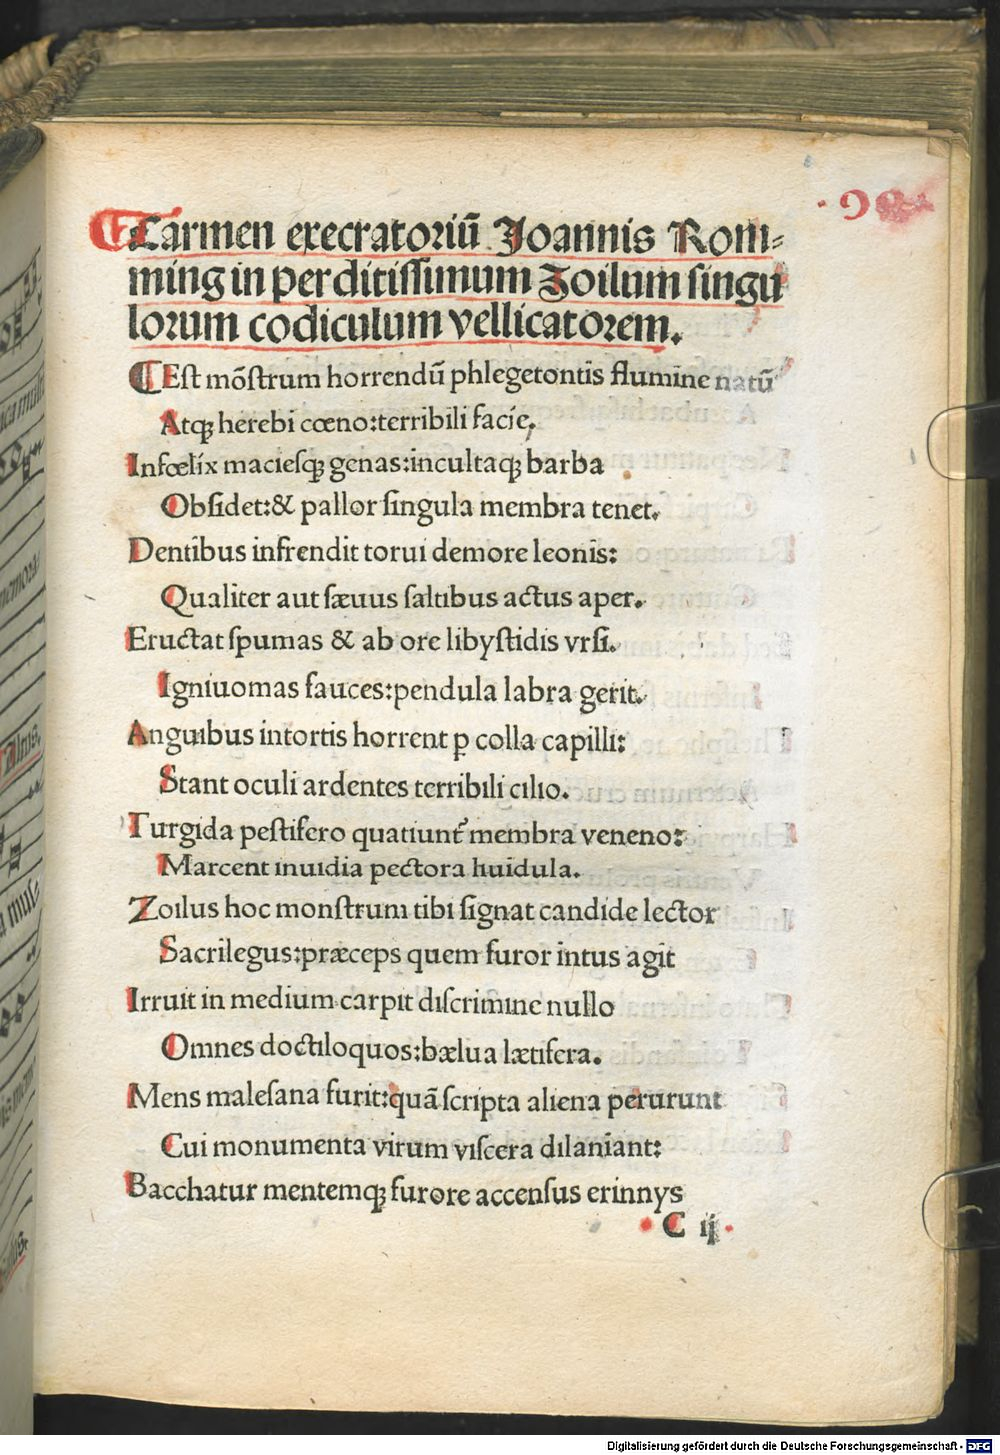 Carmen execratoriū Joannis Rom⸗
ming in perditissimum Zoilum singu
lorum codiculum vellicatorem.
Est mōstrum horrendū phlegetontis flumine natū
Atqꝫ herebi cœno:terribili facie.
Infœlix maciesqꝫ genas:incultaqꝫ barba
Obsidet:& pallor singula membra tenet.
Dentibus infrendit torui demore leonis:
Qualiter aut sæuus saltibus actus aper.
Eructat spumas & ab ore libystidis vrsi.
Igniuomas fauces:pendula labra gerit.
Anguibus intortis horrent ꝑ colla capilli:
Stant oculi ardentes terribili cilio.
Turgida pestifero quatiunt᷑ membra veneno:
Marcent inuidia pectora huidula.
Zoilus hoc monstrum tibi signat candide lector
Sacrilegus:præceps quem furor intus agit
Irruit in medium carpit discrimine nullo
Omnes doctiloquos:bælua lætifera.
Mens malesana furit:quā scripta aliena perurunt
Cui monumenta virum viscera dilaniant:
Bacchatur mentemqꝫ furore accensus erinnys
C ij
Digitalisierung gefördert durch die Deutsche Forschungsgemeinschaft - DFG